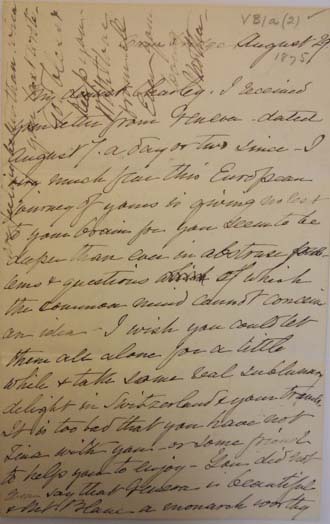 VB1a(2)
August 27
1875
My dearest Charley. I received
your letter from Geneva - dated
August 7. a day or two since - I
very much fear this European
journey of yours is giving no rest
to your brain for you seem to be
deeper than ever in abstruse prob-
lems & questions of which
the common mind cannot conceive
an idea - I wish you could let
them all alone for a little
while & take some real sublunary
delight in Switzerland & your travels
It is too bad that you have not
Zina with you - or some friend
to help you to enjoy - You did not
even say that Geneva is beautiful
& Mt. Blanc a monarch worthy